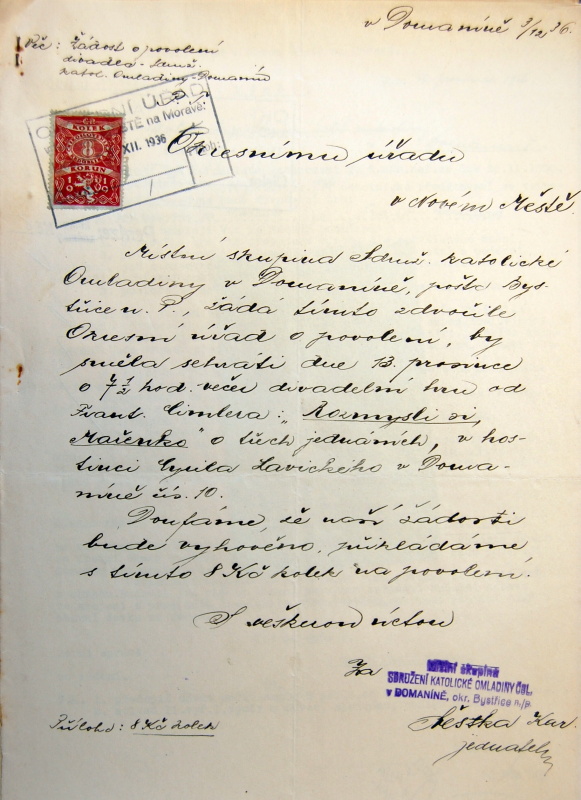 v Domaníně 3/12 36.
Věc: Žádost o povolení
divadla - Sdruž.
katol. Omladiny - Domanín
KOLEK
8
KORUN
19
MĚSTĚ na Moravě
XII. 1936
Okresnímu úřadu
v Novém Městě.
Místní skupina Sdruž. katolické
Omladiny v Domaníně, pošta Bys-
třice n. P., žádá tímto zdvořile
Okresní úřad o povolení, by
směla sehráti dne 13. prosince
o 7 1/2 hod. večer divadelní hru od
Frant. Cimlera: „Rozmysli si,
Mařenko" o třech jednáních, v hos-
tinci Cyrila Lavického v Doma-
níně čís. 10.
Doufáme, že naší žádosti
bude vyhověno, přikládáme
s tímto 8 Kč kolek na povolení.
S veškerou úctou
Za
Místní skupina
SDRUŽENÍ KATOLICKÉ OMLADINY ČSL.
v DOMANÍNĚ, okr. Bystřice n./p.
Kar.
jednatel
Příloha: 8 Kč kolek